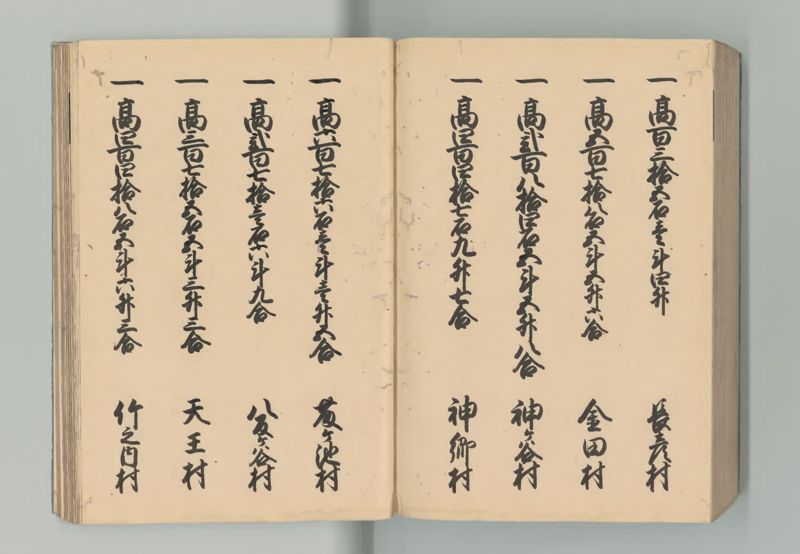 一 高百三拾五石壱斗四升 長彦村
一 高五百七拾八石五斗五升六合 金田村
一 高弐百八拾四石五斗五升八合 神ヶ谷村
一 高四百四拾七石九升七合 神郷村
一 高六百七拾六石壱斗壱升五合 ヶ池村
一 高弐百七拾壱石六斗九合 八反ヶ谷村
一 高三百七拾五石五斗三升三合 天王村
一 高四百四拾八石五斗六升三合 竹之内村